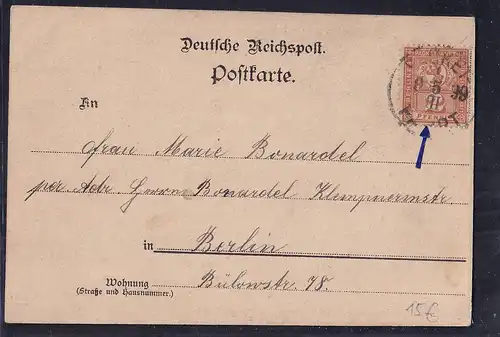 Deutsche Reichspost.
Postkarte.
An
Frau Marie Bonardel
per Adr. Herrn Bonardel Klempnermstr.
in Berlin
Wohnung Bülowstr. 78.
(Straße und Hausnummer.)
PFENNIG
99
15€